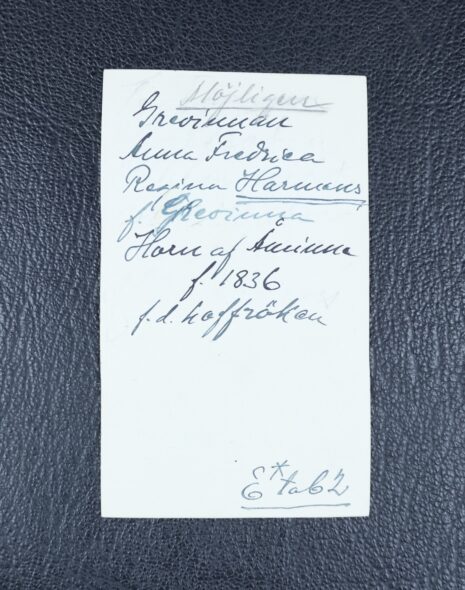 Möjligen
Grevinnan
Anna Fredrica
Regina Harmens
f. Grevinna
Horn af Åminne
f. 1836
f.d. hoffröken
E* tab 2